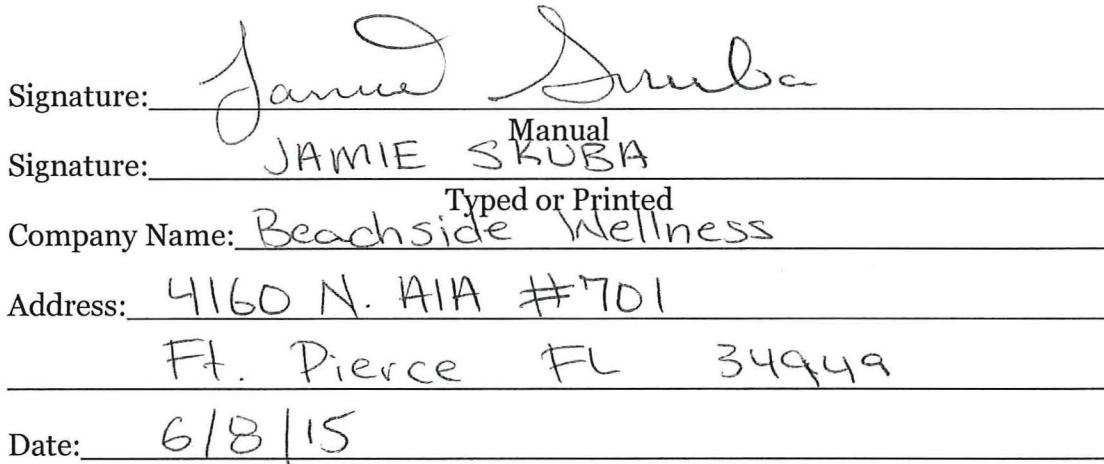 Signature: Jamie Skuba
Manual
Signature: JAMIE SKUBA
Typed or Printed
Company Name: Beachside Wellness
Address: 4160 N. A1A #701
Ft. Pierce FL 34949
Date: 6/8/15